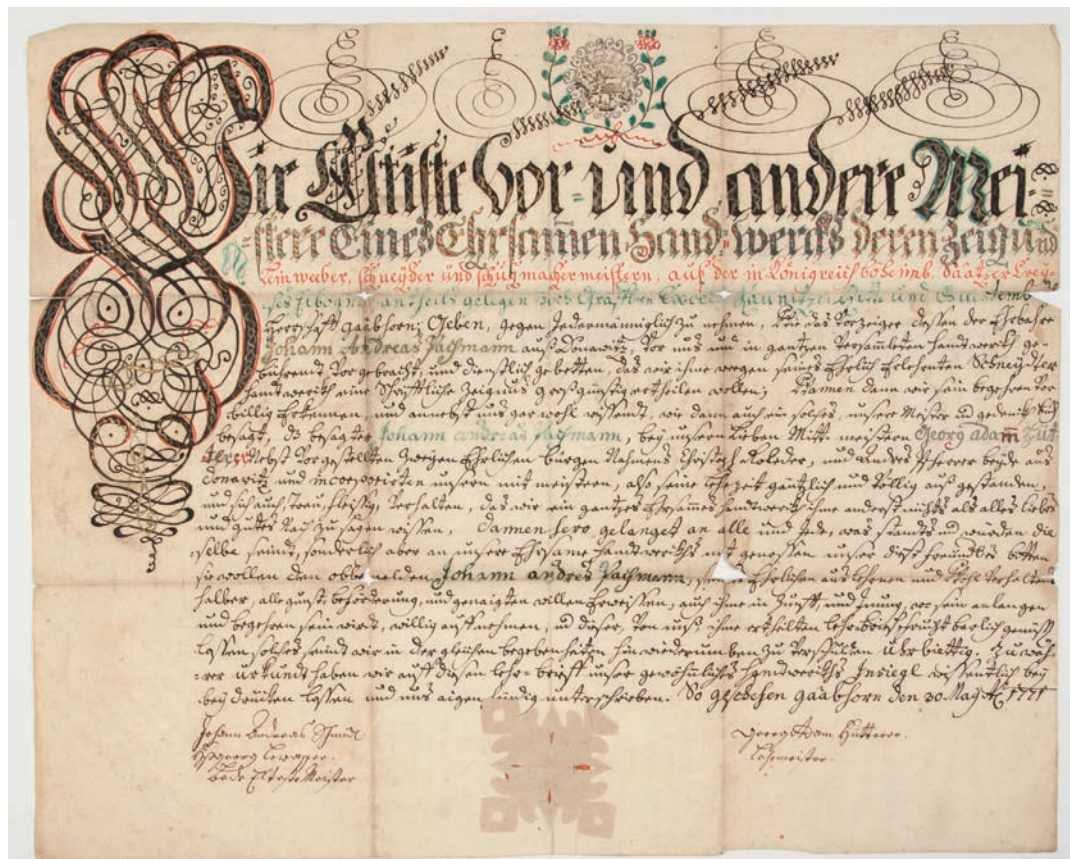 Wir Eltiste Vor- und andere Mei-
stere Eines Ehrsamen Hand-wercks deren Zeig und
Leinweeber, schneyder und schuchmachermeistern, auf der in Königreich böheimb. Saatzer Crey-
ses antheils gelegen Gräfflich Kaunitz und
Herrschafft gaabhorn; Geben, gegen Jedermänniglich zu nehmen, der Ehrbahre
Johann Andreas Pachmann auß Donawitz, Vor uns und in gantzen Versambten handwerckh ge-
bührent Vorgebracht, und dienstlich gebetten, das wir ihme wegen seines Ehrlich Erlehrnten Schneyder
handwerckh eine Schrifftliche Zeignus großgünstig ertheilen wollen; Wannen dann wir sein begehren Vor
billig Erkennen, und annebst uns gar wohl wissent, wie dann auch ein solches, unser Meister
besagt, daß besagter Johann Andreas Pachmann, bey unsern Lieben Mitt meistern Georg adam Hut-
terer Nebst Vorgestelten Zweyen Ehrlichen bürgen Nahmens Christoph Roleder, und Andres beyde aus
donawitz und incorporirten unsern mit meistern, also seine Lehrzeit gäntzlich und Völlig auß gestanden,
und sich auch treu, fleißig, Verhalten, das wir ein gantzes Ehrsames handtwerckh ihme anderst nichts als alles liebes
und guttes Nach zu sagen wissen, dannenhero, gelanget an alle und Jede, was standts und würden die
selbe seindt, sonderlich aber an unsere Ehrsame handtwerckhs mit genossen unser dienst freundliches bitten
sie wollen den obbemelden Johann andres Pachmann, seines Ehrlichen aus lehrnen und Wohl Verhalten
halber, alle gunst, beförderung, und genaigten willen Erweissen, auch ihme in Zunfft, und Innung, wo sein anlangen
und begehren sein wirdt, willig auff nehmen, und dieser, Von unß ihme ertheilten lehr-brieff frucht barlich genüssen
lassen, solches seindt wir in der gleichen begebenheiten hin wiederumben zu Verschulden Uhrbiettig. Zu wah-
rer uhrkundt haben wir auff diesen Lehr-brieff unser gewöhnliches handtwerckhs Insiegl wissentlich bey
bey druken lassen und uns aigen händig unterschrieben. So geschehen gaabhorn den 30 May Ao 1771
Johann Andreas Schmidt
Hß georg
bede Elteste Meister
georg Adam Hutterer
Lehrmeister.